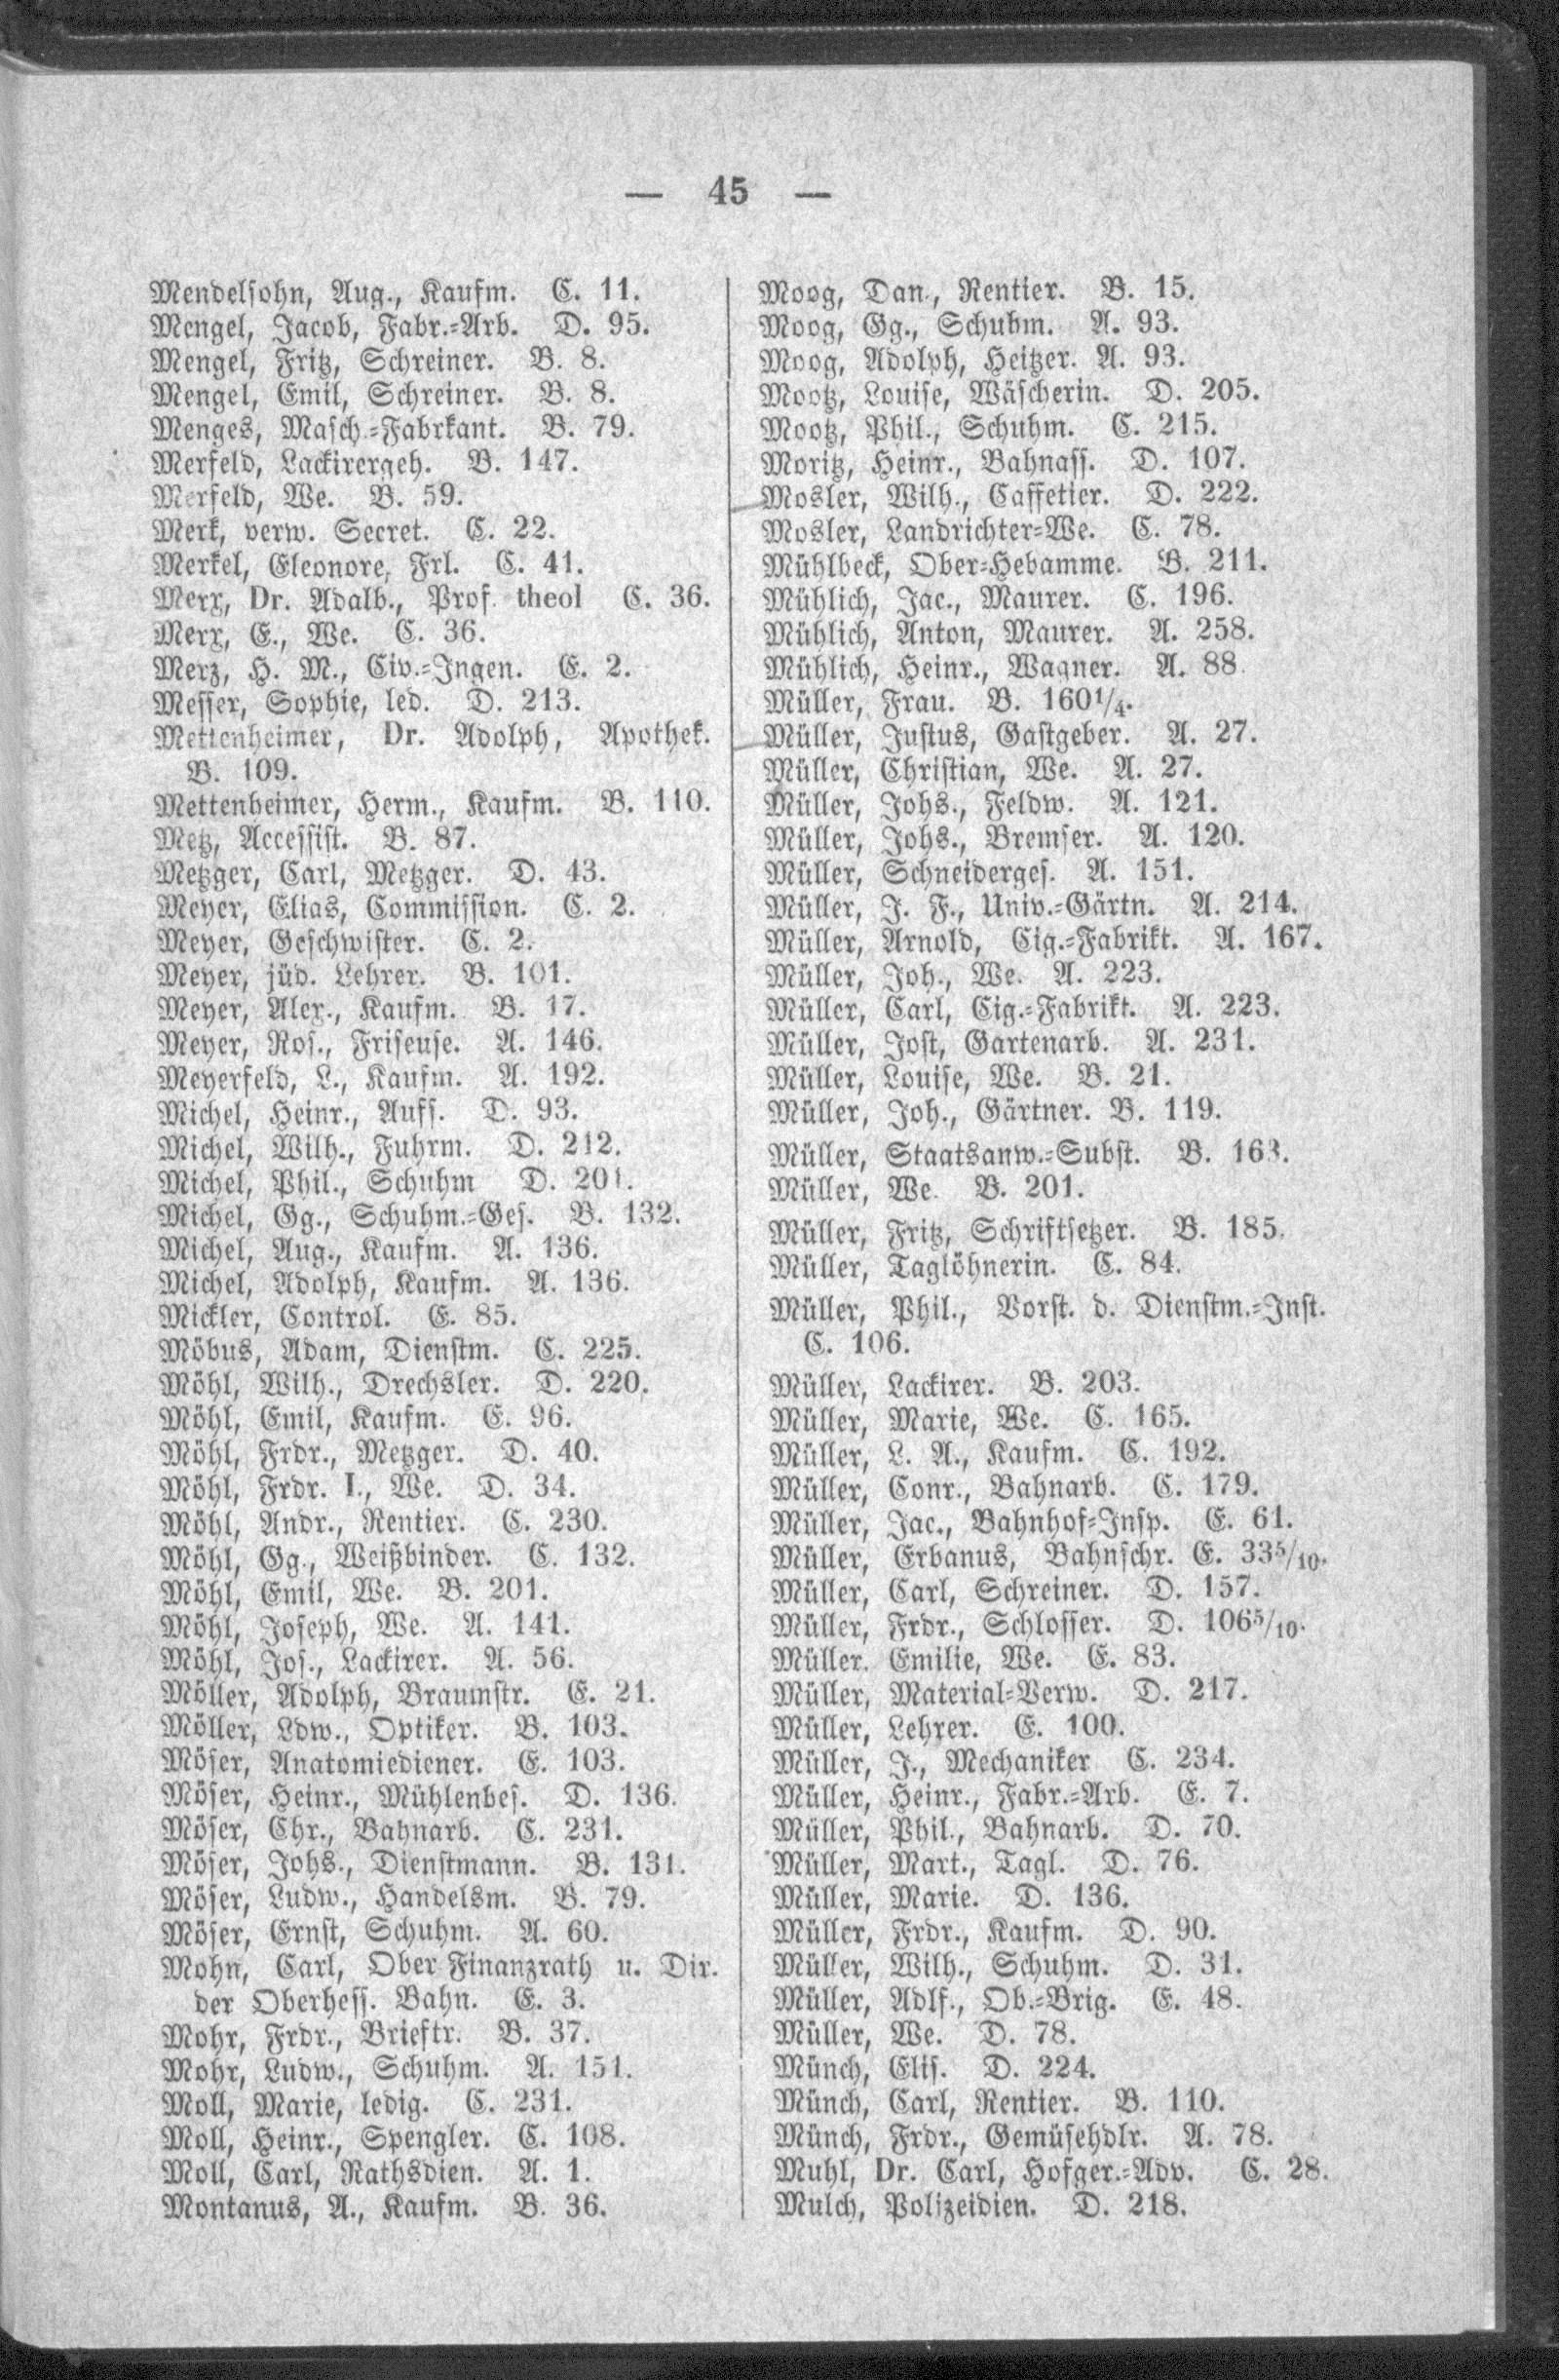 — 45 —
Mendelsohn, Aug., Kaufm. C. 11.
Mengel, Jacob, Fabr.-Arb. D. 95.
Mengel, Fritz, Schreiner. B. 8.
Mengel, Emil, Schreiner. B. 8.
Menges, Masch.-Fabrkant. B. 79.
Merfeld, Lackirergeh. B. 147.
Merfeld, We. B. 59.
Merk, verw. Secret. C. 22.
Merkel, Eleonore, Frl. C. 41.
Merx, Dr. Adalb., Prof. theol C. 36.
Merx, E., We. C. 36.
Merz, H. M., Civ.-Ingen. E. 2.
Messer, Sophie, led. D. 213.
Mettenheimer, Dr. Adolph, Apothek.
B. 109.
Mettenheimer, Herm., Kaufm. B. 110.
Metz, Accessist. B. 87.
Metzger, Carl, Metzger. D. 43.
Meyer, Elias, Commission. C. 2.
Meyer, Geschwister. C. 2.
Meyer, jüd. Lehrer. B. 101.
Meyer, Alex., Kaufm. B. 17.
Meyer, Ros., Friseuse. A. 146.
Meyerfeld, L., Kaufm. A. 192.
Michel, Heinr., Aufs. D. 93.
Michel, Wilh., Fuhrm. D. 212.
Michel, Phil., Schuhm D. 201.
Michel, Gg., Schuhm.-Ges. B. 132.
Michel, Aug., Kaufm. A. 136.
Michel, Adolph, Kaufm. A. 136.
Mickler, Control. E. 85.
Möbus, Adam, Dienstm. C. 225.
Möhl, Wilh., Drechsler. D. 220.
Möhl, Emil, Kaufm. E. 96.
Möhl, Frdr., Metzger. D. 40.
Möhl, Frdr. I., We. D. 34.
Möhl, Andr., Rentier. C. 230.
Möhl, Gg., Weißbinder. C. 132.
Möhl, Emil, We. B. 201.
Möhl, Joseph, We. A. 141.
Möhl, Jos., Lackirer. A. 56.
Möller, Adolph, Braumstr. E. 21.
Möller, Ldw., Optiker. B. 103.
Möser, Anatomiediener. E. 103.
Möser, Heinr., Mühlenbes. D. 136.
Möser, Chr., Bahnarb. C. 231.
Möser, Johs., Dienstmann. B. 131.
Möser, Ludw., Handelsm. B. 79.
Möser, Ernst, Schuhm. A. 60.
Mohn, Carl, Ober Finanzrath u. Dir.
der Oberhess. Bahn. E. 3.
Mohr, Frdr., Brieftr. B. 37.
Mohr, Ludw., Schuhm. A. 151.
Moll, Marie, ledig. C. 231.
Moll, Heinr., Spengler. C. 108.
Moll, Carl, Rathsdien. A. 1.
Montanus, A., Kaufm. B. 36.
Moog, Dan., Rentier. B. 15.
Moog, Gg., Schuhm. A. 93.
Moog, Adolph, Heitzer. A. 93.
Mootz, Louise, Wäscherin. D. 205.
Mootz, Phil., Schuhm. C. 215.
Moritz, Heinr., Bahnass. D. 107.
Mosler, Wilh., Caffetier. D. 222.
Mosler, Landrichter-We. C. 78.
Mühlbeck, Ober-Hebamme. B. 211.
Mühlich, Jac., Maurer. C. 196.
Mühlich, Anton, Maurer. A. 258.
Mühlich, Heinr., Wagner. A. 88.
Müller, Frau. B. 160 1/4.
Müller, Justus, Gastgeber. A. 27.
Müller, Christian, We. A. 27.
Müller, Johs., Feldw. A. 121.
Müller, Johs., Bremser. A. 120.
Müller, Schneiderges. A. 151.
Müller, J. F., Univ.-Gärtn. A. 214.
Müller, Arnold, Cig.-Fabrikt. A. 167.
Müller, Joh., We. A. 223.
Müller, Carl, Cig.-Fabrikt. A. 223.
Müller, Jost, Gartenarb. A. 231.
Müller, Louise, We. B. 21.
Müller, Joh., Gärtner. B. 119.
Müller, Staatsanw.-Subst. B. 163.
Müller, We. B. 201.
Müller, Fritz, Schriftsetzer. B. 185.
Müller, Taglöhnerin. C. 84.
Müller, Phil., Vorst. d. Dienstm.-Inst.
C. 106.
Müller, Lackirer. B. 203.
Müller, Marie, We. C. 165.
Müller, L. A., Kaufm. C. 192.
Müller, Conr., Bahnarb. C. 179.
Müller, Jac., Bahnhof-Insp. E. 61.
Müller, Erbanus, Bahnschr. E. 33 5/10.
Müller, Carl, Schreiner. D. 157.
Müller, Frdr., Schlosser. D. 106 5/10.
Müller. Emilie, We. E. 83.
Müller, Material-Verw. D. 217.
Müller, Lehrer. E. 100.
Müller, J., Mechaniker C. 234.
Müller, Heinr., Fabr.-Arb. E. 7.
Müller, Phil., Bahnarb. D. 70.
Müller, Mart., Tagl. D. 76.
Müller, Marie. D. 136.
Müller, Frdr., Kaufm. D. 90.
Müller, Wilh., Schuhm. D. 31.
Müller, Adlf., Ob.-Brig. E. 48.
Müller, We. D. 78.
Münch, Elis. D. 224.
Münch, Carl, Rentier. B. 110.
Münch, Frdr., Gemüsehdlr. A. 78.
Muhl, Dr. Carl, Hofger.-Adv. C. 28.
Mulch, Polizeidien. D. 218.